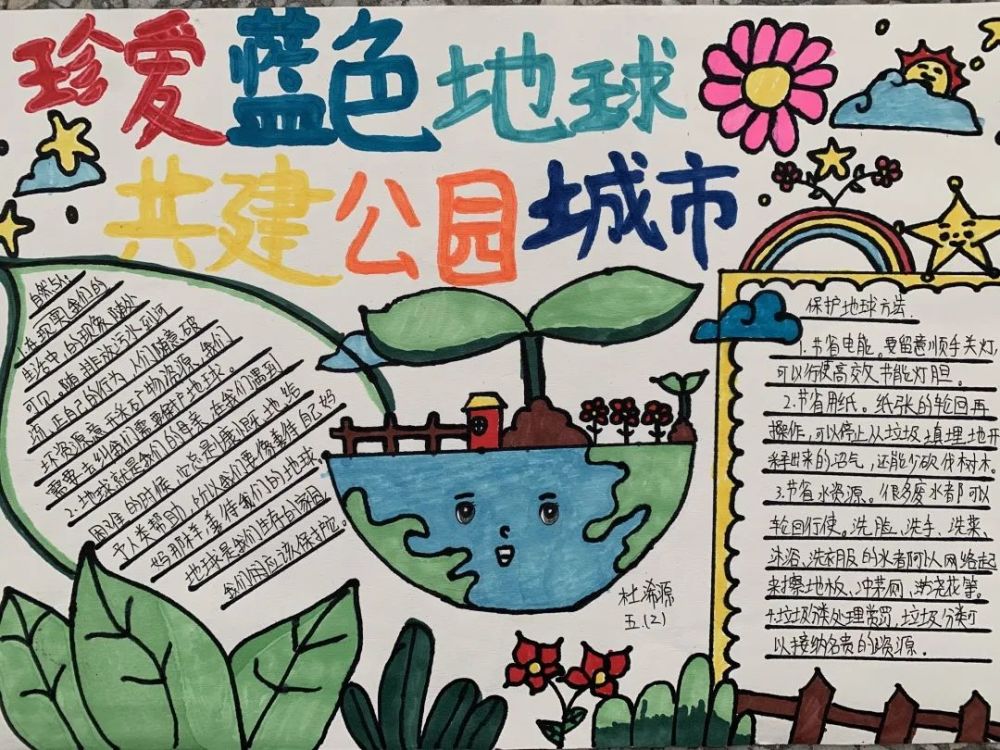 珍爱蓝色地球
共建公园城市
自然与
1.在现果我们的
生活中,的现象随处
可见。随排放污水到河
须,正自己的行为 人们随意破
坏资源意开采矿物资源。我们
需要去纠我们需要保护地球。
2.地球就是我们的母亲.在我们遇到
困难的时候,它总是慷慨地给
予人类帮助,所以我们要像善待自己妈
妈那样善待我们的地球,
地球是我们生存的家园
我们用应该保护它。
保护地球方法.
1.节省电能。要留意顺手关灯,
可以行使高效节能灯胆。
2.节省用纸。纸张的轮回再
操作,可以停止从垃圾填埋地开
释出来的沼气,还能少砍伐树木。
3.节省水资源。很多废水都可以
轮回行使。洗脸、洗手、洗菜、
沐浴、洗衣服的水都可以网络起
来擦地板、冲茅厕、浇花等。
4.垃圾分类处理赏罚,垃圾分类可
以接纳名贵的资源.
杜浠源
五.(2)